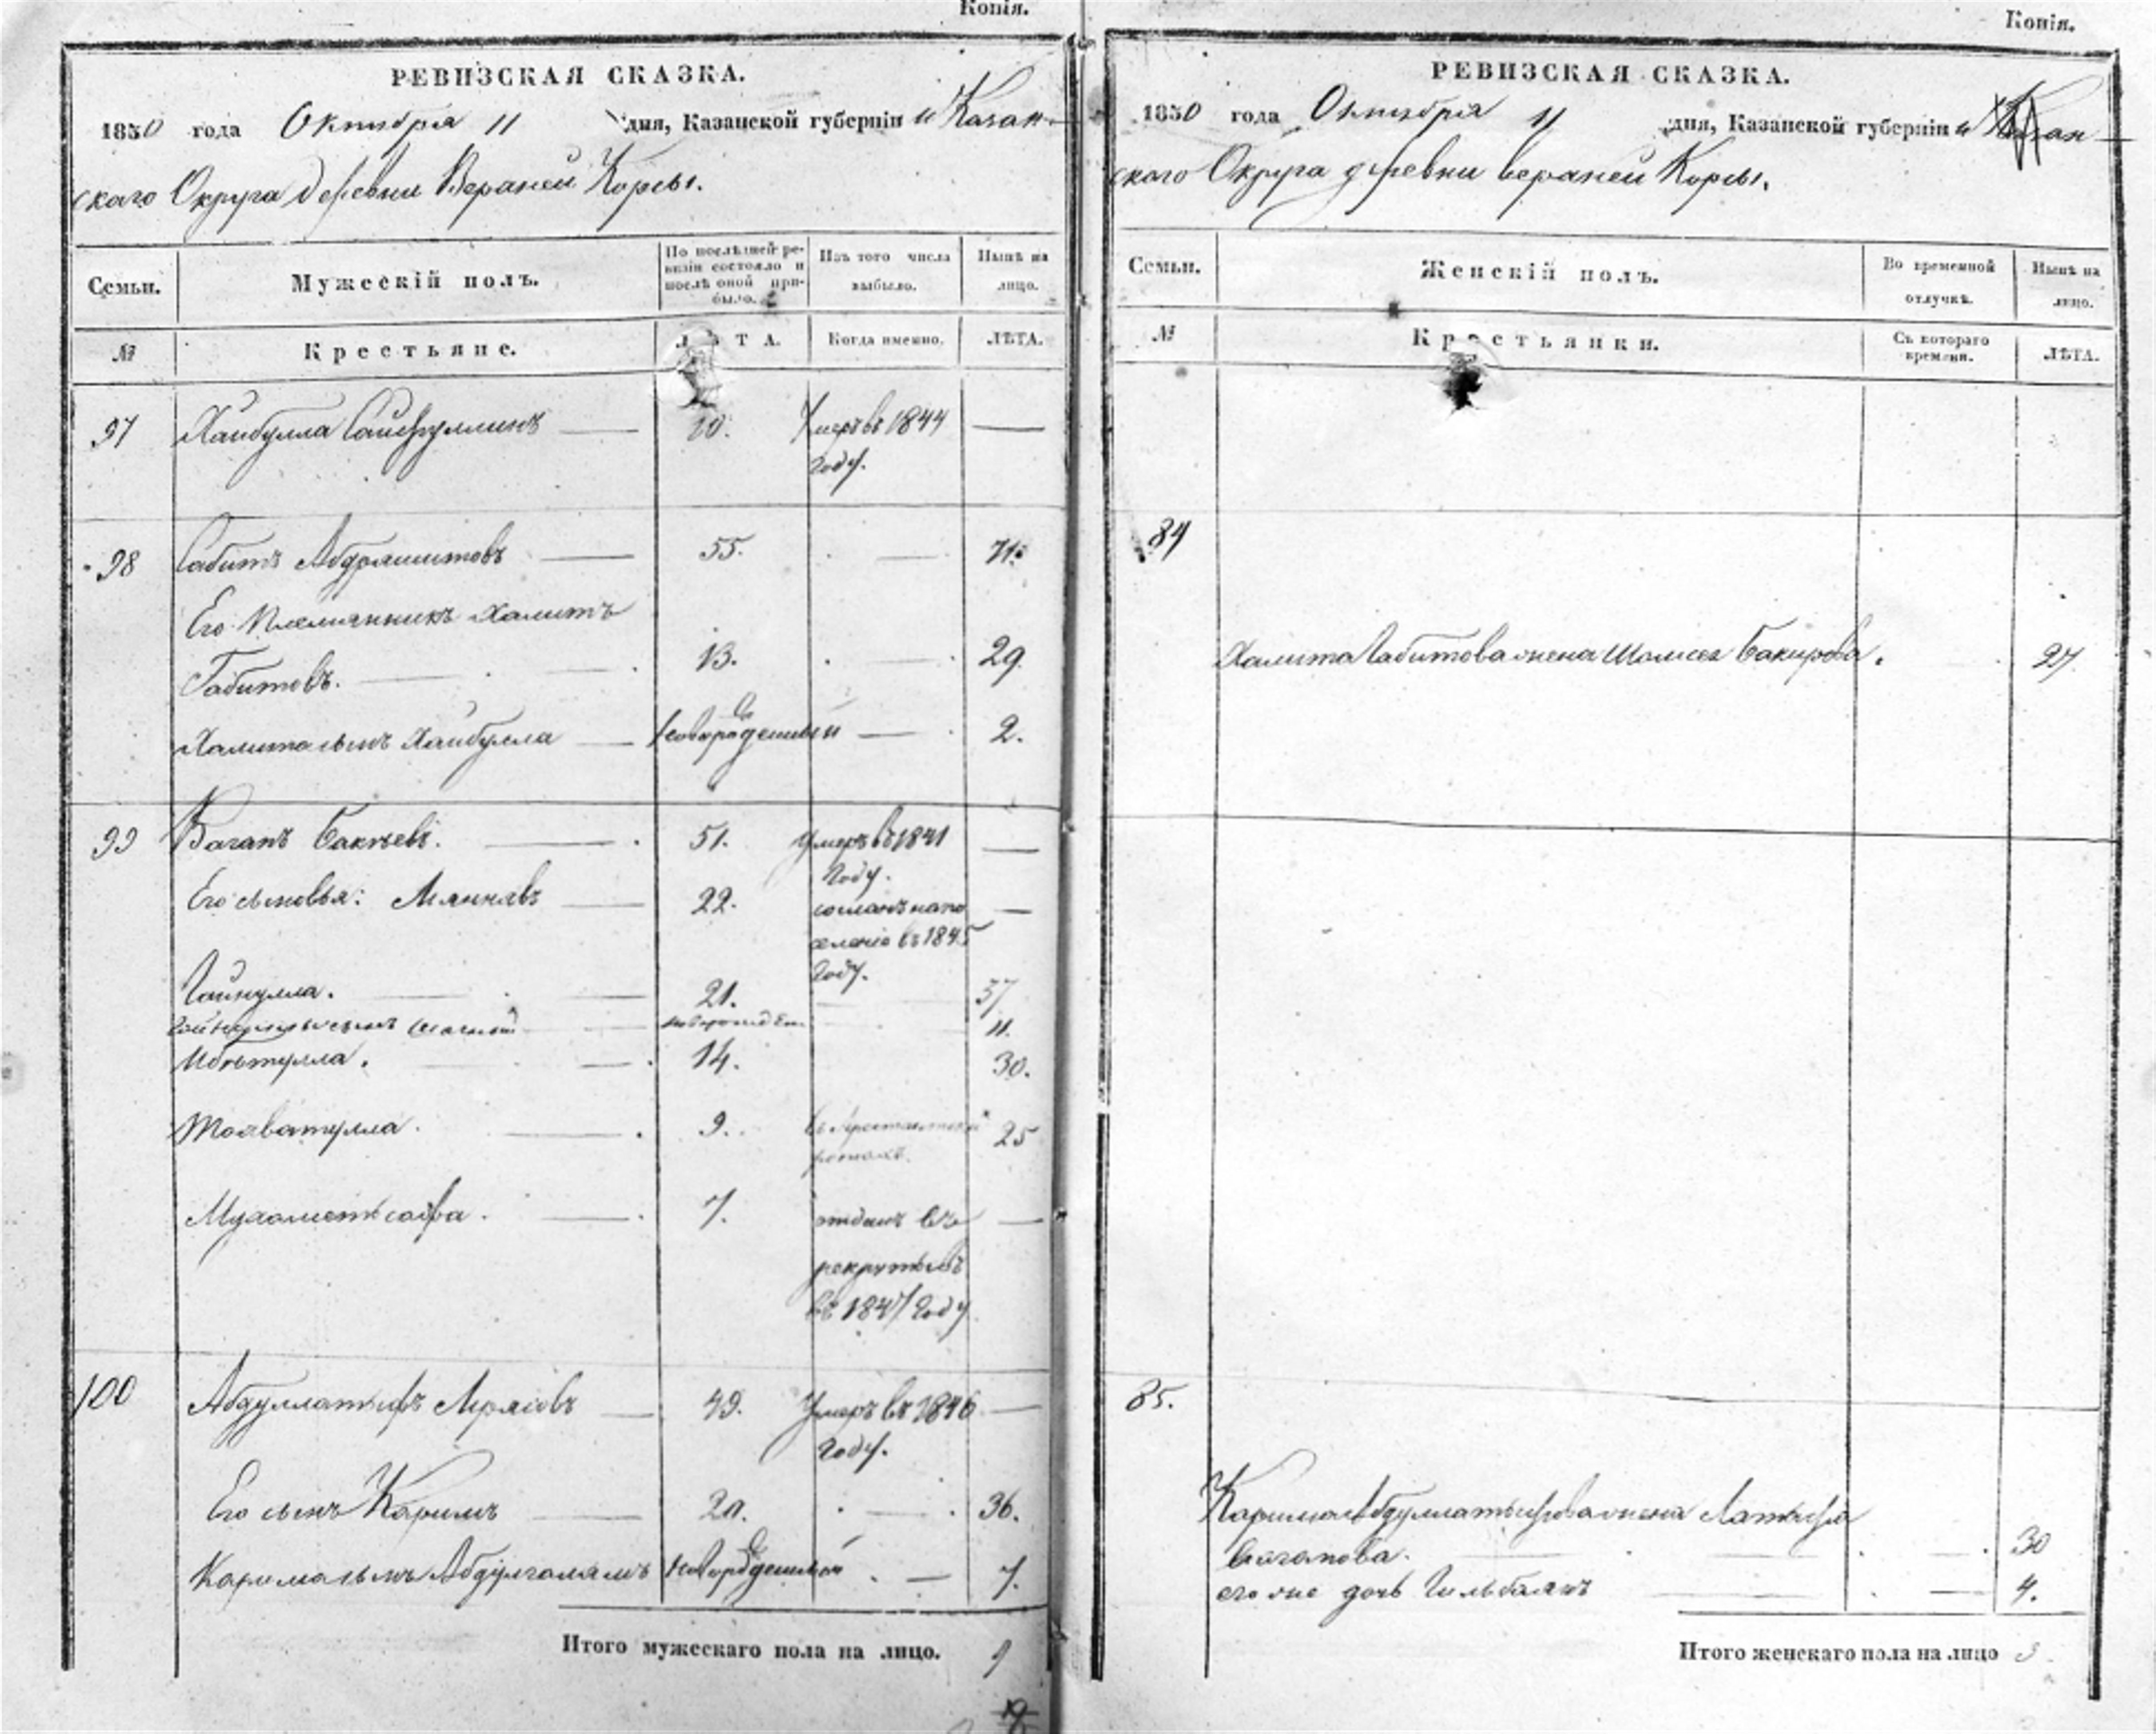 Копія.
РЕВИЗСКАЯ СКАЗКА.
1850 года Октября 11 дня, Казанской губерніи и Казан-
скаго Округа деревни Верхней Корсы.
Семьи.
Мужескій полъ.
По послѣдней ре-
визіи состояло и
послѣ оной при-
было.
Изъ того числа
выбыло.
Нынѣ на
лицо.
№
Крестьяне.
ЛѢТА.
Когда именно.
ЛѢТА.
97 Хайбулла Сайфуллинъ 20. Умеръ въ 1844
году.
98 Сабитъ Абдрашитовъ 55. 71.
Его племянникъ Халитъ
Габитовъ. 13. 29.
Халита сынъ Хайбулла новорожденный 2.
99 Ваганъ Бакѣевъ. 51. Умеръ въ 1841
году.
Его сыновья: Маннавъ 22. сосланъ на по
селеніе въ 1845
году.
Гайнулла. 21. 37
сынъ новорожден 11.
Ибэтулла. 14. 30.
9. 25
Мухаметсафа. 7. отданъ въ
рекруты въ
въ 1847 году
100 Абдуллатыфъ 49. Умеръ въ 1846
году.
Его сынъ Каримъ 20. 36.
Карима сынъ Абдулгалямъ новорожденный 7.
Итого мужескаго пола на лицо. 9
Копія.
РЕВИЗСКАЯ СКАЗКА.
1850 года Октября 11 дня, Казанской губерніи и Казан
скаго Округа деревни верхней Корсы.
Семьи.
Женскій полъ.
Во временной
отлучкѣ.
Нынѣ на
лицо.
№
Крестьянки.
Съ котораго
времени.
ЛѢТА.
84
Халита Габитова жена Бакирова. 27.
85.
Карима Абдуллатыфова жена Латыфа
Ваганова. 30
его же дочь Гильбаянъ 4.
Итого женскаго пола на лицо 3.